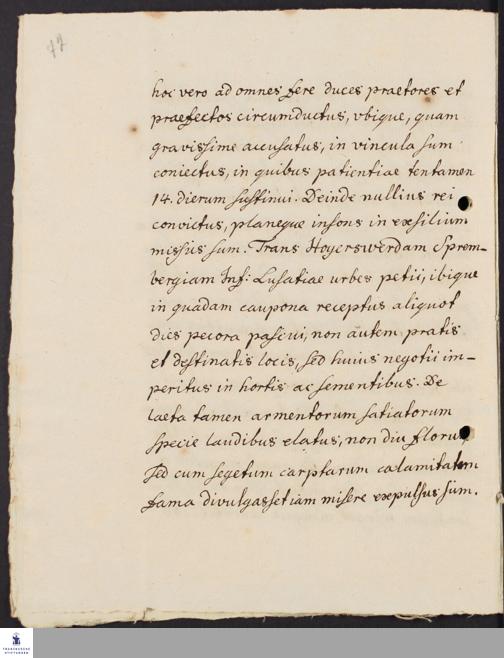 77
hoc vero ad omnes fere duces praetores et
praefectos circumductus, vbique, quam
gravissime accusatus, in vincula sum
coniectus, in quibus patientiae tentamen
14. dierum sustinui. Deinde nullius rei
convictus, planeque insons in exsilium
missus sum. Trans Hoyerswerdam Sprem-
bergiam Inf: Lusatiae urbes petii, ibique
in quadam caupona receptus aliquot
dies pecora pascui, non autem pratis
et destinatis locis, sed huius negotii im-
peritus in hortis ac sementibus. De
laeta tamen armentorum satiatorum
specie laudibus elatus, non diu florui,
sed cum segetum carptarum calamitatem
fama divulgasset iam misere expulsus sum.
FRANCKESCHE
STIFTUNGEN